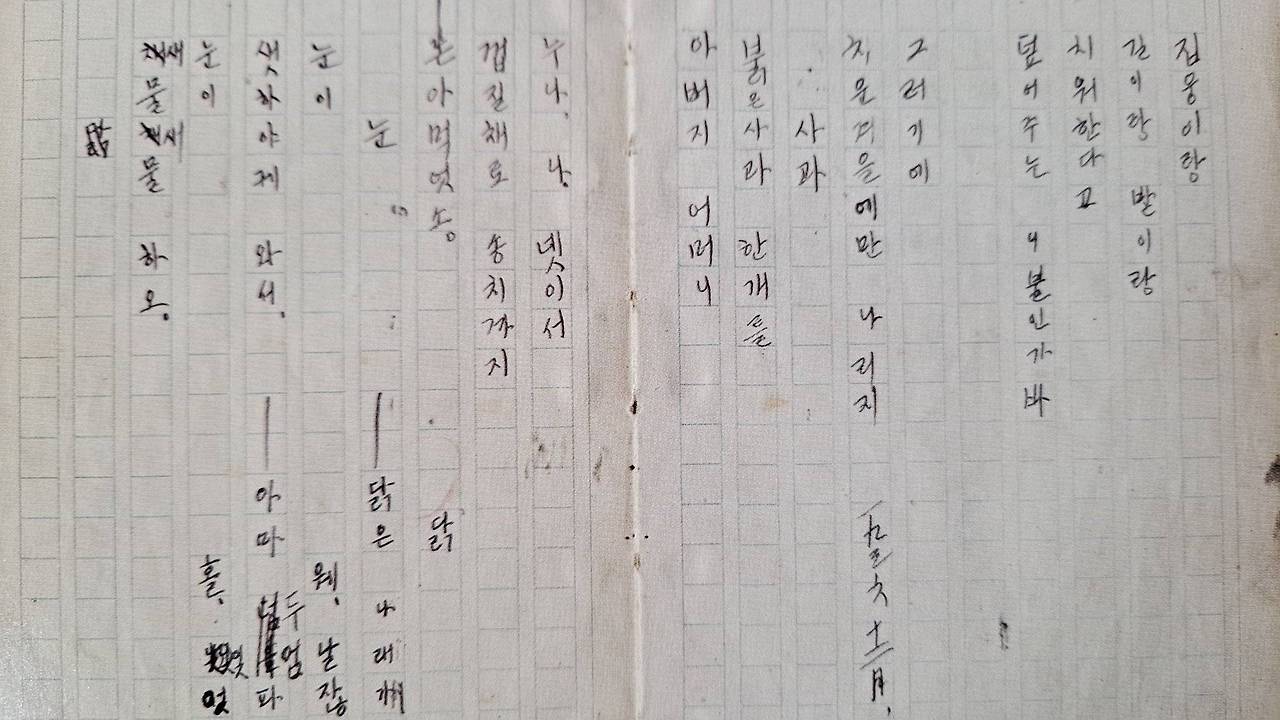 집웅이랑
길이랑 밭이랑
치워한다고
덮어주는 니불인가바
그러기에
치운겨을에만 나리지
十二月.
사과
붉은사과 한개를
아버지 어머니
누나, 나, 넷이서
껍질채로 송치까지
논아먹엇소。
눈
눈이
샛하야케 와서,
눈이
새물새물 하오。
닭
—닭은 나래가
웨, 날잖
—아마 두엄파
홀, 잊엇